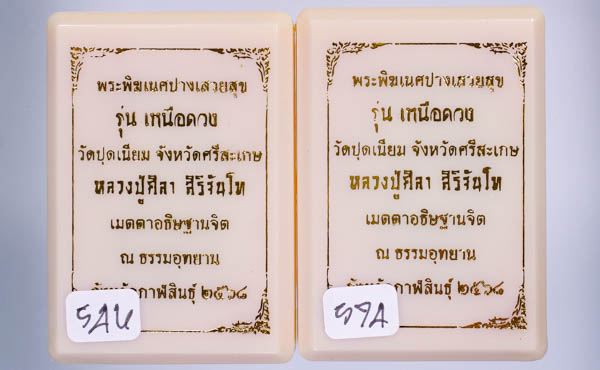 พระพิฆเนศปางเสวยสุข
รุ่น เหนือดวง
วัดปุดเนียม จังหวัดศรีสะเกษ
หลวงปู่ศิลา สิริจันโท
เมตตาอธิษฐานจิต
ณ ธรรมอุทยาน
กาฬสินธุ์ ๒๕๖๘
พระพิฆเนศปางเสวยสุข
รุ่น เหนือดวง
วัดปุดเนียม จังหวัดศรีสะเกษ
หลวงปู่ศิลา สิริจันโท
เมตตาอธิษฐานจิต
ณ ธรรมอุทยาน
กาฬสินธุ์ ๒๕๖๘